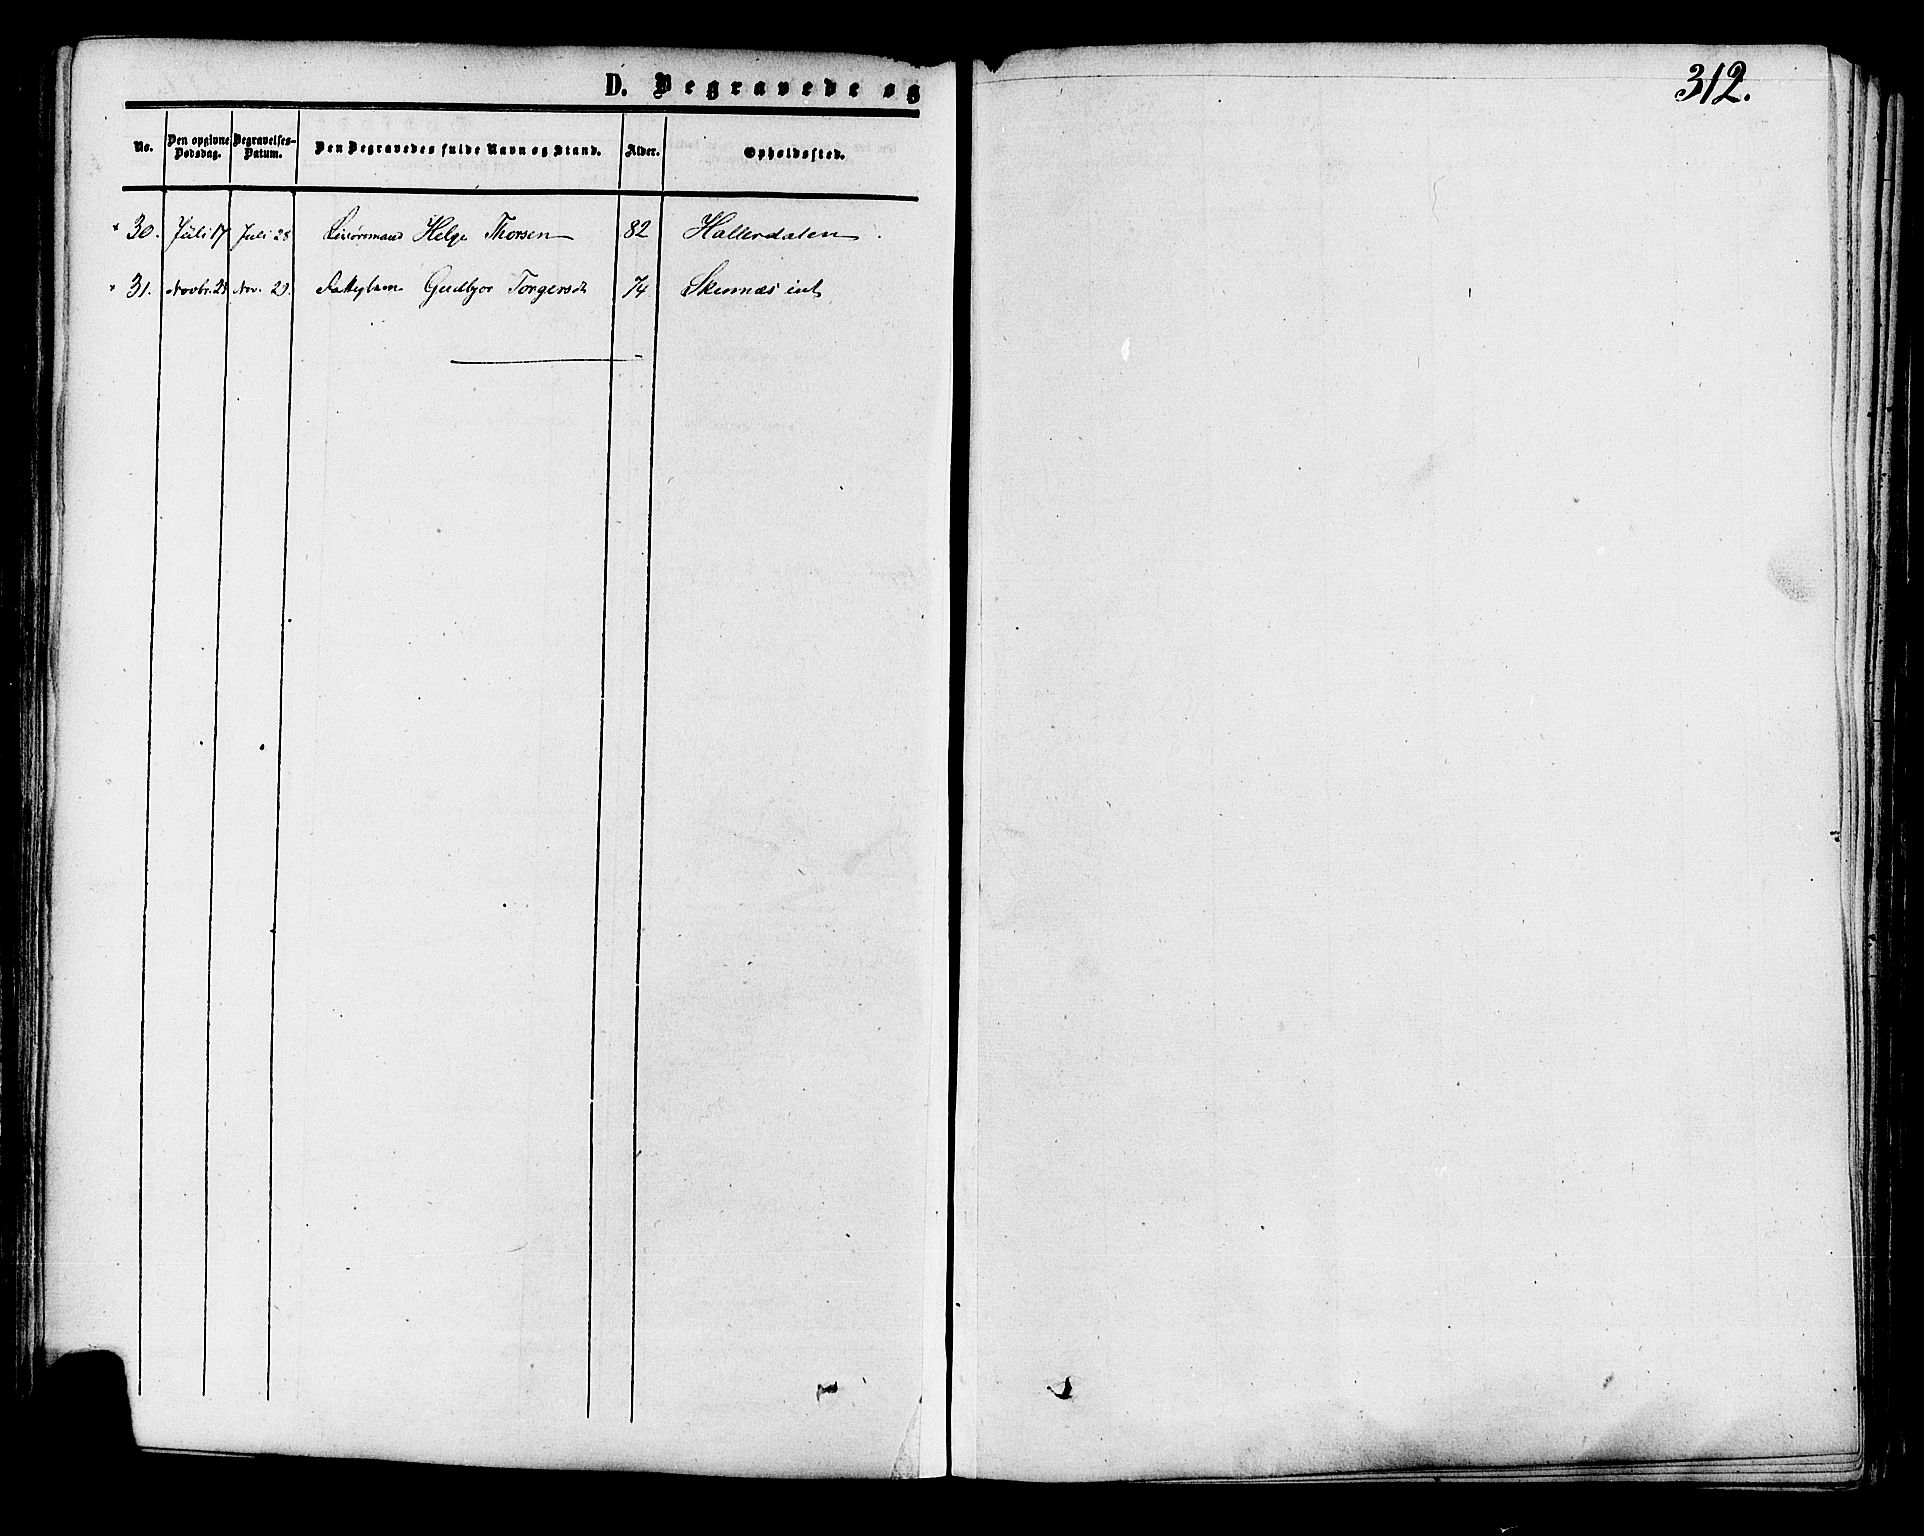 D. Begravede og
312.
No. Den opgivne Dødsdag. Begravelses-Datum. Den Begravedes fulde Navn og Stand. Alder. Opholdssted.
30. Juli 17 Juli 28 Helge Thorsen 82 Hallerdalen
31. Novbr. 21 Nov. 29. Gudbjor Torgersdt 74